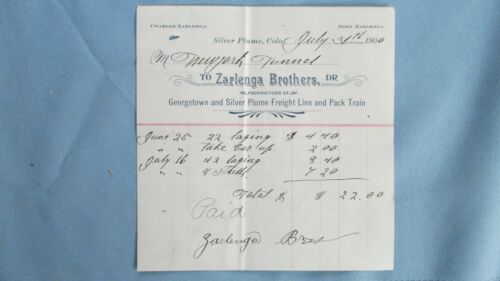 CHARLES ZARLENGA
JOHN ZARLENGA
Silver Plume, Colo. July 31th 1900
M Newyork Tunnel
TO Zarlenga Brothers, DR
PROPRIETORS OF
Georgetown and Silver Plume Freight Line and Pack Train
June 25 22 laging $ 4 40
" " take Car up 2 00
July 16 42 laging 8 40
" " 8 7 20
Total $ $ 22.00
Paid
Zarlenga Bros